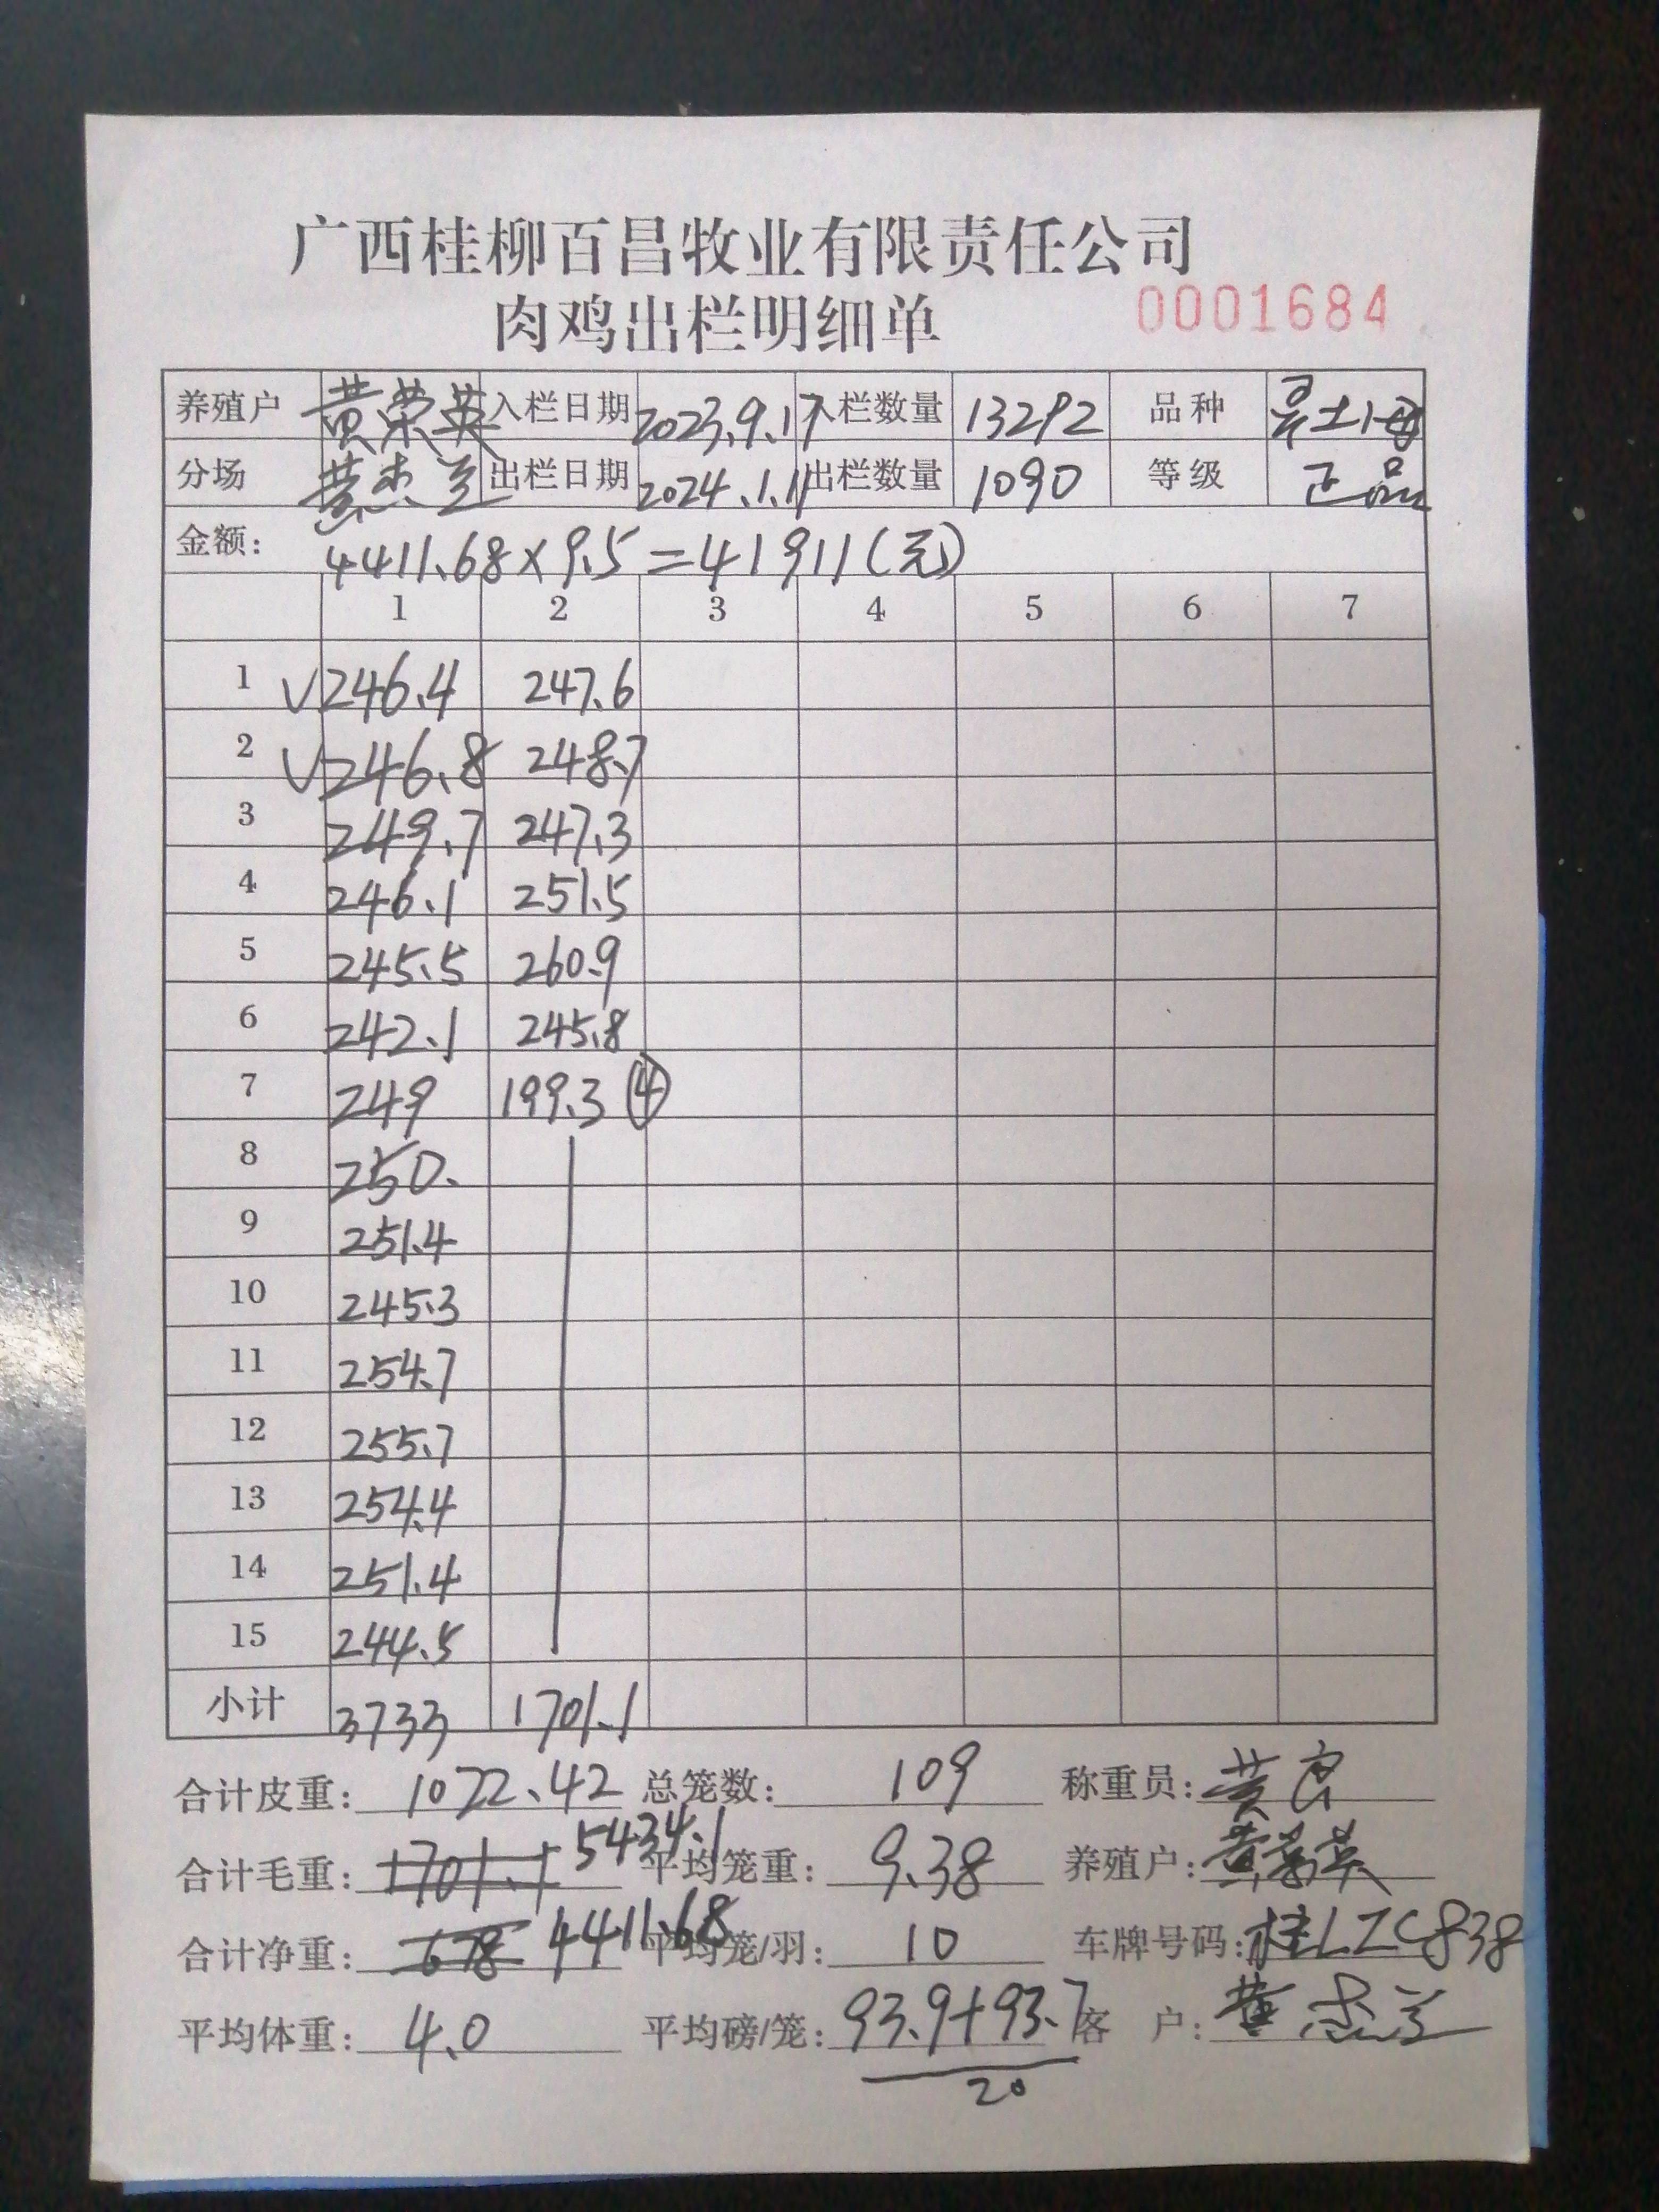 广西桂柳百昌牧业有限责任公司
肉鸡出栏明细单 0001684
养殖户 黄荣英 入栏日期 2023.9.17 入栏数量 13292 品种 土
分场 黄 兰 出栏日期 2024.1.11 出栏数量 1090 等级 正品
金额: 4411.68×9.5=41911(元)
1 2 3 4 5 6 7
1 √246.4 247.6
2 √246.8 248.7
3 249.7 247.3
4 246.1 251.5
5 245.5 260.9
6 242.1 245.8
7 249 199.3 ④
8 250.
9 251.4
10 245.3
11 254.7
12 255.7
13 254.4
14 251.4
15 244.5
小计 3733 1701.1
合计皮重: 1022.42 总笼数: 109 称重员: 黄
合计毛重: 1701.1 5434.1 平均笼重: 9.38 养殖户: 黄荣英
合计净重: 678 4411.68 平均笼/羽: 10 车牌号码: 桂LZC838
平均体重: 4.0 平均磅/笼: 93.9+93.7 客 户: 黄 兰
20